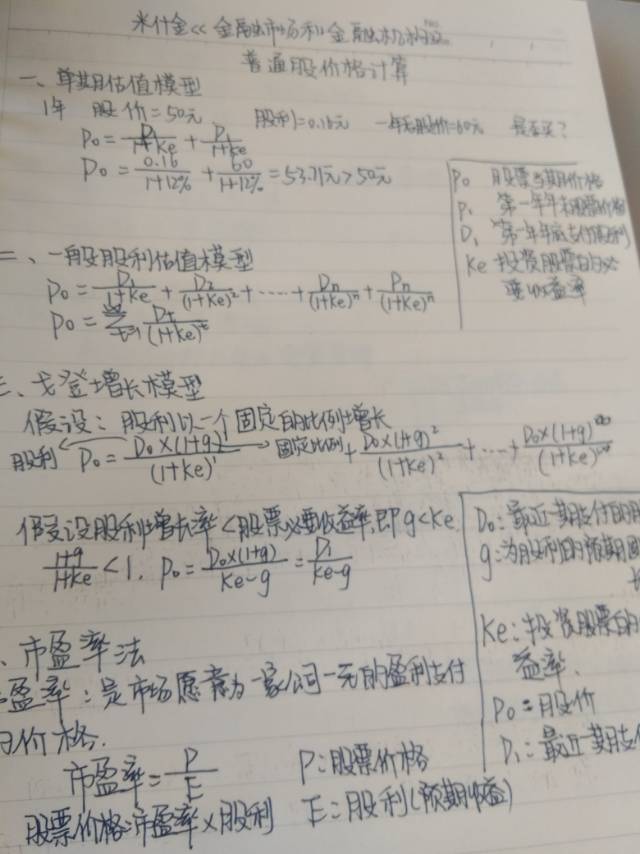 米什金<<金融市场和金融机构
普通股价格计算
一、单期估值模型
1年 股价=50元 股利=0.16元 一年后股价=60元 是否买?
P0=D1/(1+Ke)+P1/(1+Ke)
P0=0.16/(1+12%)+60/(1+12%)=53.71元>50元
P0 股票当期价格
P1 第一年年末股票价格
D1 第一年年底支付股利
Ke 投资股票的必
要收益率
二、一般股利估值模型
P0=D1/(1+Ke)+D2/(1+Ke)²+……+Dn/(1+Ke)ⁿ+Pn/(1+Ke)ⁿ
P0=∑t=1 Dt/(1+Ke)^t
三、戈登增长模型
假设:股利以一个固定的比例增长
股利 P0=D0×(1+g)¹/(1+Ke)¹ 固定比例+D0×(1+g)²/(1+Ke)²+……+D0×(1+g)^∞/(1+Ke)^∞
假设股利增长率<股票必要收益率,即g<Ke.
(1+g)/(1+Ke)<1. P0=D0×(1+g)/(Ke-g)=D1/(Ke-g)
D0:最近一期支付的股
g:为股利的预期固
Ke:投资股票的
益率.
P0=股价
D1:最近一期支付
、市盈率法
盈率:是市场愿意为一家公司一元的盈利支付
价格.
市盈率=P/E P:股票价格
股票价格=市盈率×股利 E:股利(预期收益)